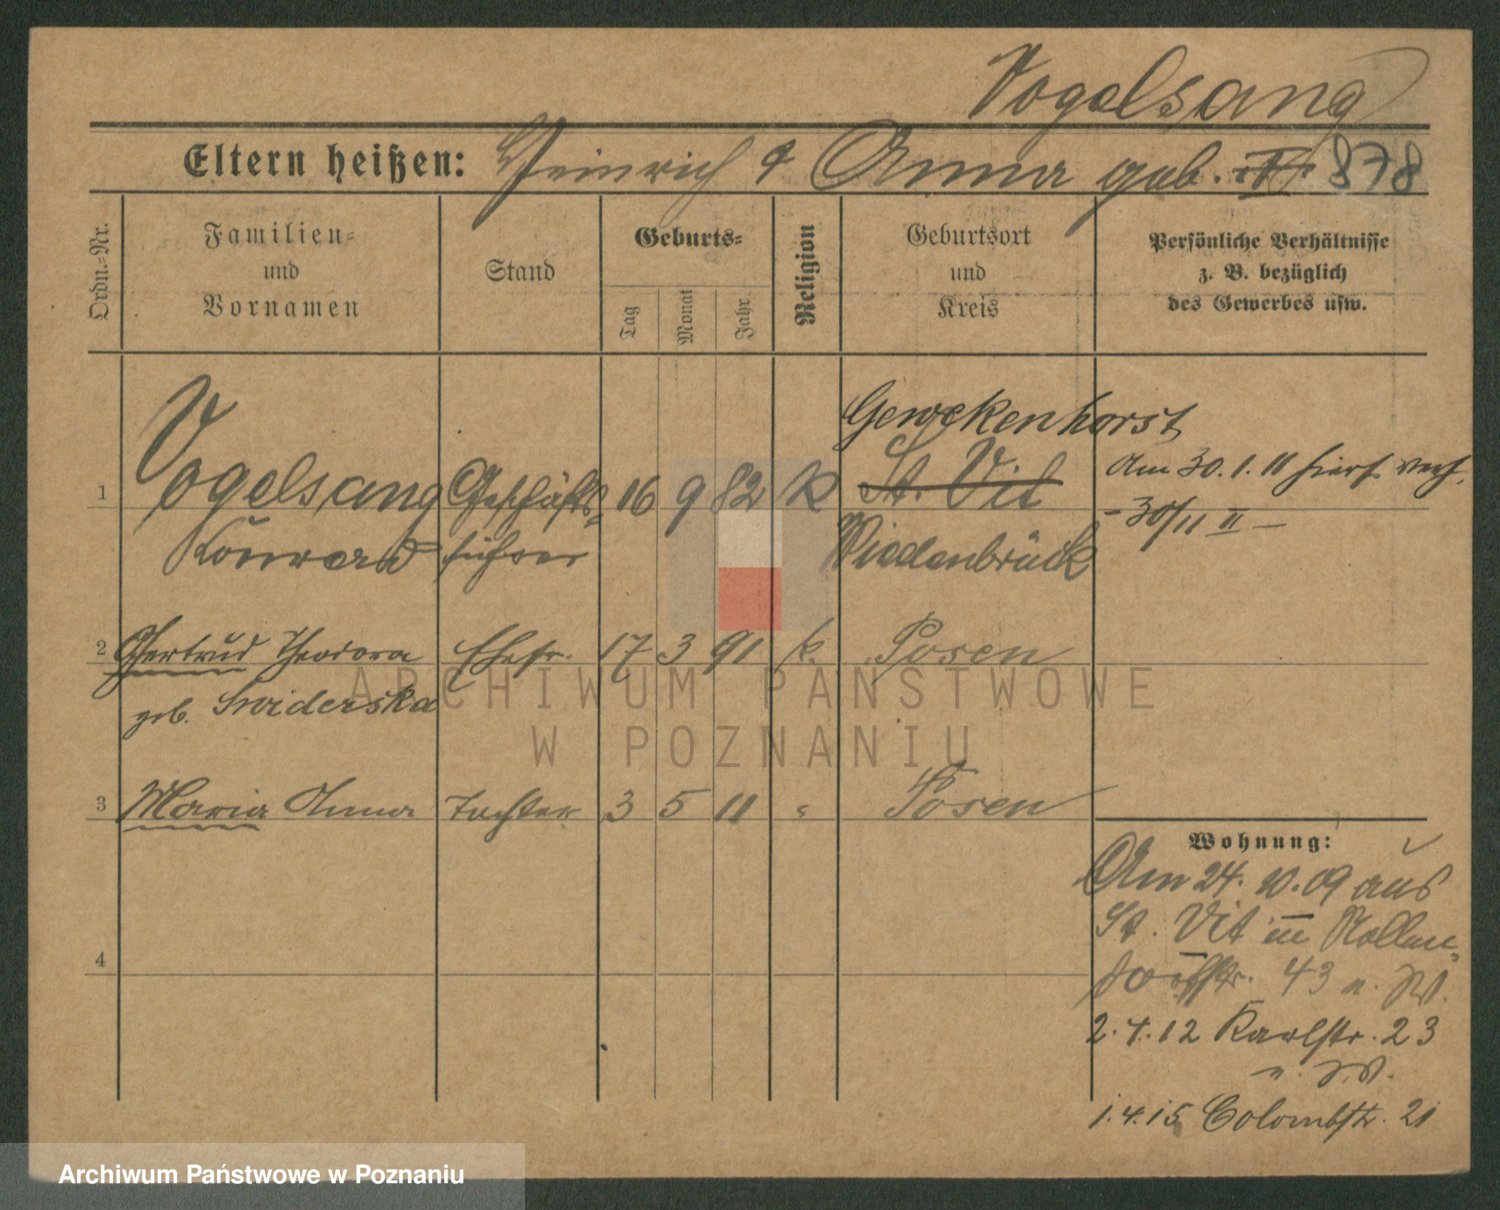 Vogelsang
Eltern heißen: Heinrich & Anna geb. 878
Ordn.-Nr.
Familien-
und
Vornamen
Stand
Geburts-
Tag
Monat
Jahr
Religion
Geburtsort
und
Kreis
Persönliche Verhältnisse
z. B. bezüglich
des Gewerbes usw.
Gewekenhorst
1 Vogelsang Geschäfts- 16 9 82 K St. Vit Am 30. 1. 11 hier verh.
Konrad führer Wiedenbrück - 30/11 II -
2 Gertrud Theodora Ehefr. 17 3 91 k. Posen
geb. Swiderska
3 Maria Anna Tochter 3 5 11 " Posen
4
Wohnung:
Am 24. 10. 09 aus
St. Vit in Nollen-
dorfstr. 43 n. W.
2. 4. 12 Karlstr. 23
n. W.
1. 4. 15 Colombstr. 21
ARCHIWUM PAŃSTWOWE
W POZNANIU
Archiwum Państwowe w Poznaniu